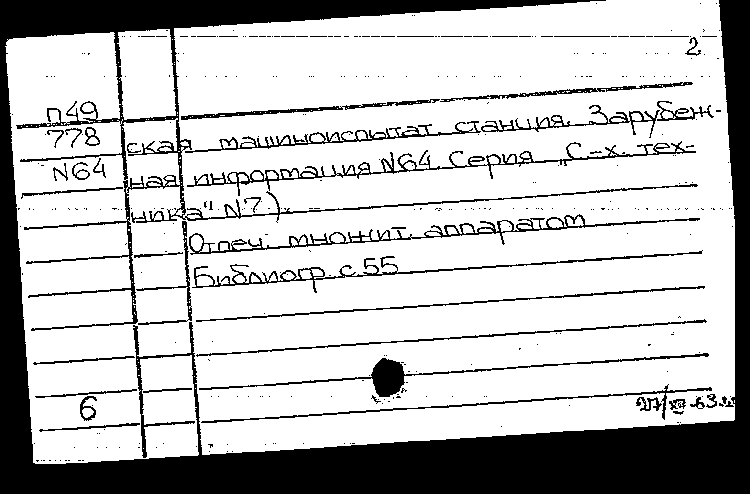 2
П49
778 ская машиноиспытат. станция. Зарубеж-
N64 ная информация N64. Серия „С-х. тех-
ника" N7).
Отпеч. множит. аппаратом
Библиогр. с.55
6
27/XII-63